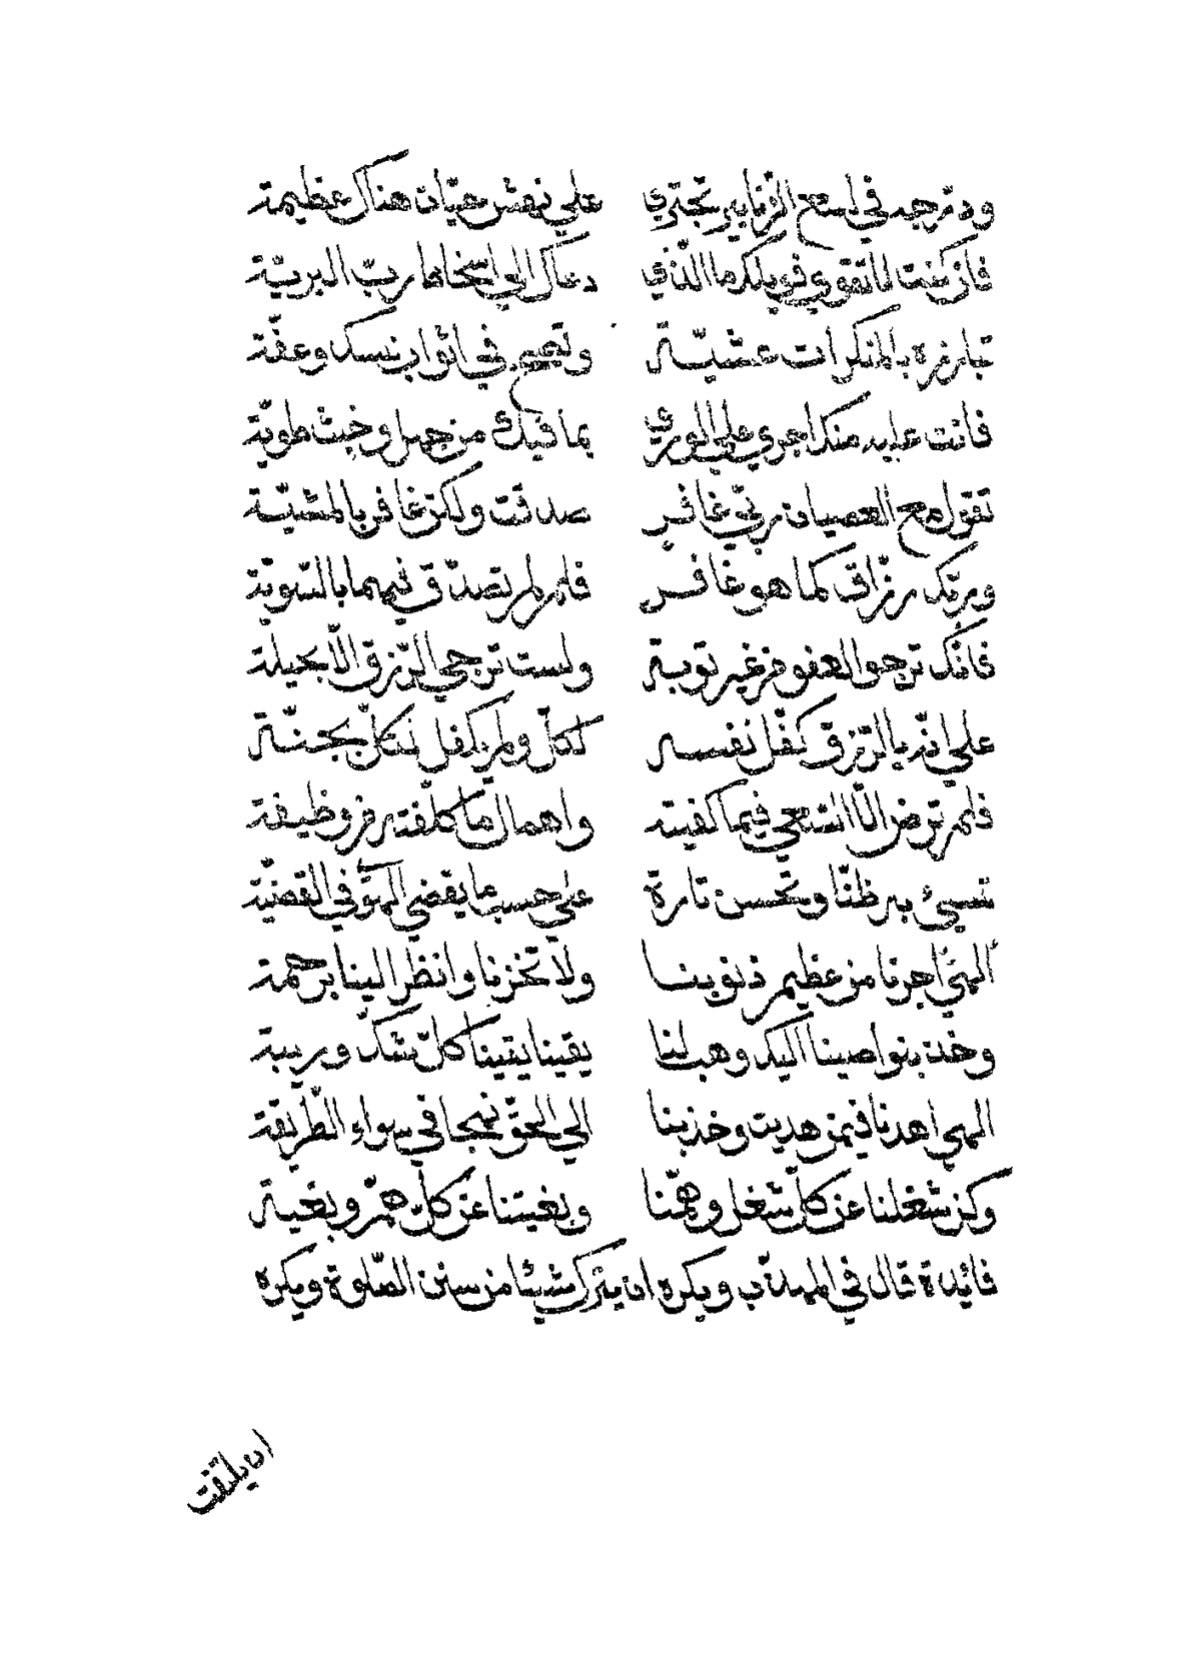 ودرجه في لسع الزنابير تجتري على نهش حيات هناك عظيمة
فان كنت لا تقوي فويلك ما الذي دعاك الي اسخاط ربّ البريّة
تبارزه بالمنكرات عشيّة وتصبح في اثواب نسك وعفّة
فانت عليه منك اجري علي الوري بما فيك من جهل وخبث طويّة
تقول مع العصيان ربّي غافر صدقت ولكن غافر بالمشيّة
وربّك رزّاق كما هو غافر فلم لم تصدّق فيهما بالسّويّة
فانّك ترجو العفو من غير توبة ولست ترجي الرّزق الّا بحيلة
علي انّه بالرّزق كفّل نفسه لكلّ ولم يكفل لكلّ بجنّة
فلم ترض الّا السّعي فيما كفيته واهمال ما كلّفته من وظيفة
تسيئ به ظنّا وتحسن تارة علي حسب ما يقضي الهوّي في القضيّة
الهي اجرنا من عظيم ذنوبنا ولا تخزنا وانظر الينا برحمة
وخذ بنواصينا اليك وهب لنا يقينا يقينا كلّ شكّ وريبة
الهي اهدنا فيمن هديت وخذ بنا الي الحقّ نهجا في سواء الطّريقة
وكن شغلنا عن كلّ شغل وهمّنا وبغيتنا عن كلّ همّ وبغية
فائدة قال في المهذّب ويكره ان يترك شيئا من سنن الصّلوة ويكره
ان يلتفت